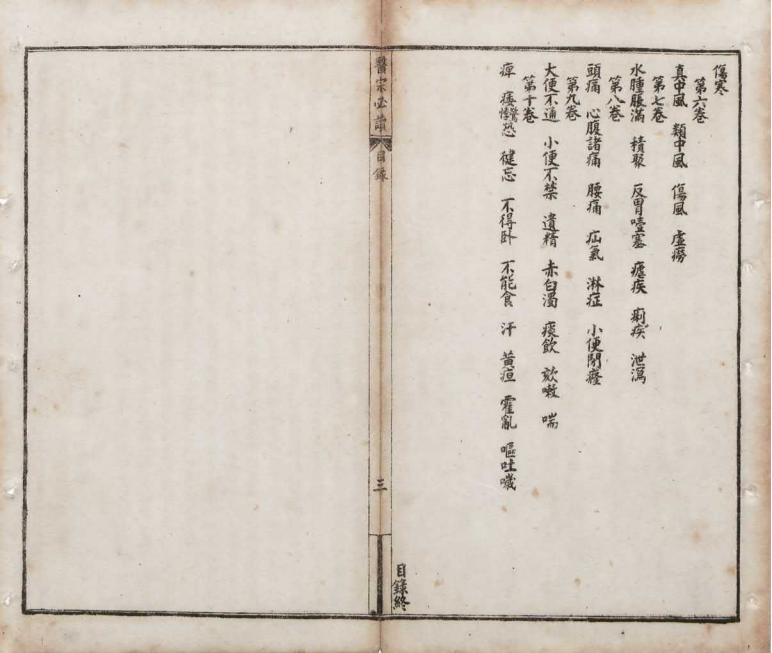 傷寒
第六卷
真中風 類中風 傷風 虛癆
第七卷
水腫脹滿 積聚 反胃噎塞 瘧疾 痢疾 泄瀉
第八卷
頭痛 心腹諸痛 腰痛 疝氣 淋症 小便閉癃
第九卷
大便不通 小便不禁 遺精 赤白濁 痰飲 欬嗽 喘
第十卷
痺 痿 驚 悸 恐 健忘 不得卧 不能食 汗 黃疸 霍亂 嘔吐噦
目錄終
醫宗必讀 目錄 三